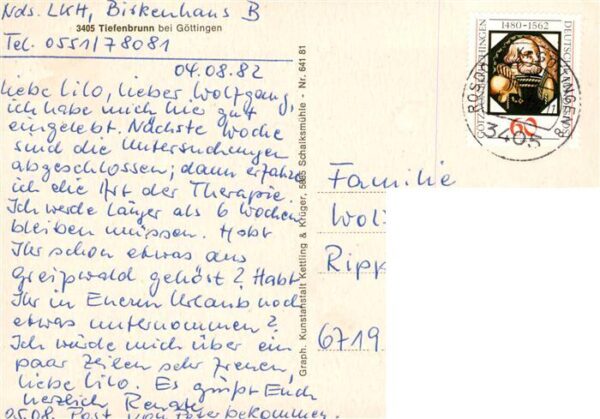 Nds. LKH, Birkenhaus B
3405 Tiefenbrunn bei Göttingen
Tel. 0551/78081
04.08.82
Liebe Lilo, lieber Wolfgang,
ich habe mich hier gut
eingelebt. Nächste Woche
sind die Untersuchungen
abgeschlossen; dann erfahre
ich die Art der Therapie.
Ich werde länger als 6 Wochen
bleiben müssen. Habt
Ihr schon etwas aus
Greifswald gehört? Habt
Ihr in Eurem Urlaub noch
etwas unternommen?
Ich würde mich über ein
paar Zeilen sehr freuen,
liebe Lilo. Es grüßt Euch
herzlich Renate
05.08. Post von Peter bekommen.
Graph. Kunstanstalt Kettling & Krüger, 5885 Schalksmühle - Nr. 641 81
1480-1562
DEUTSCHE
60
ROSDORF
GÖTTINGEN
3405
Familie
Wol
Ripp
6719